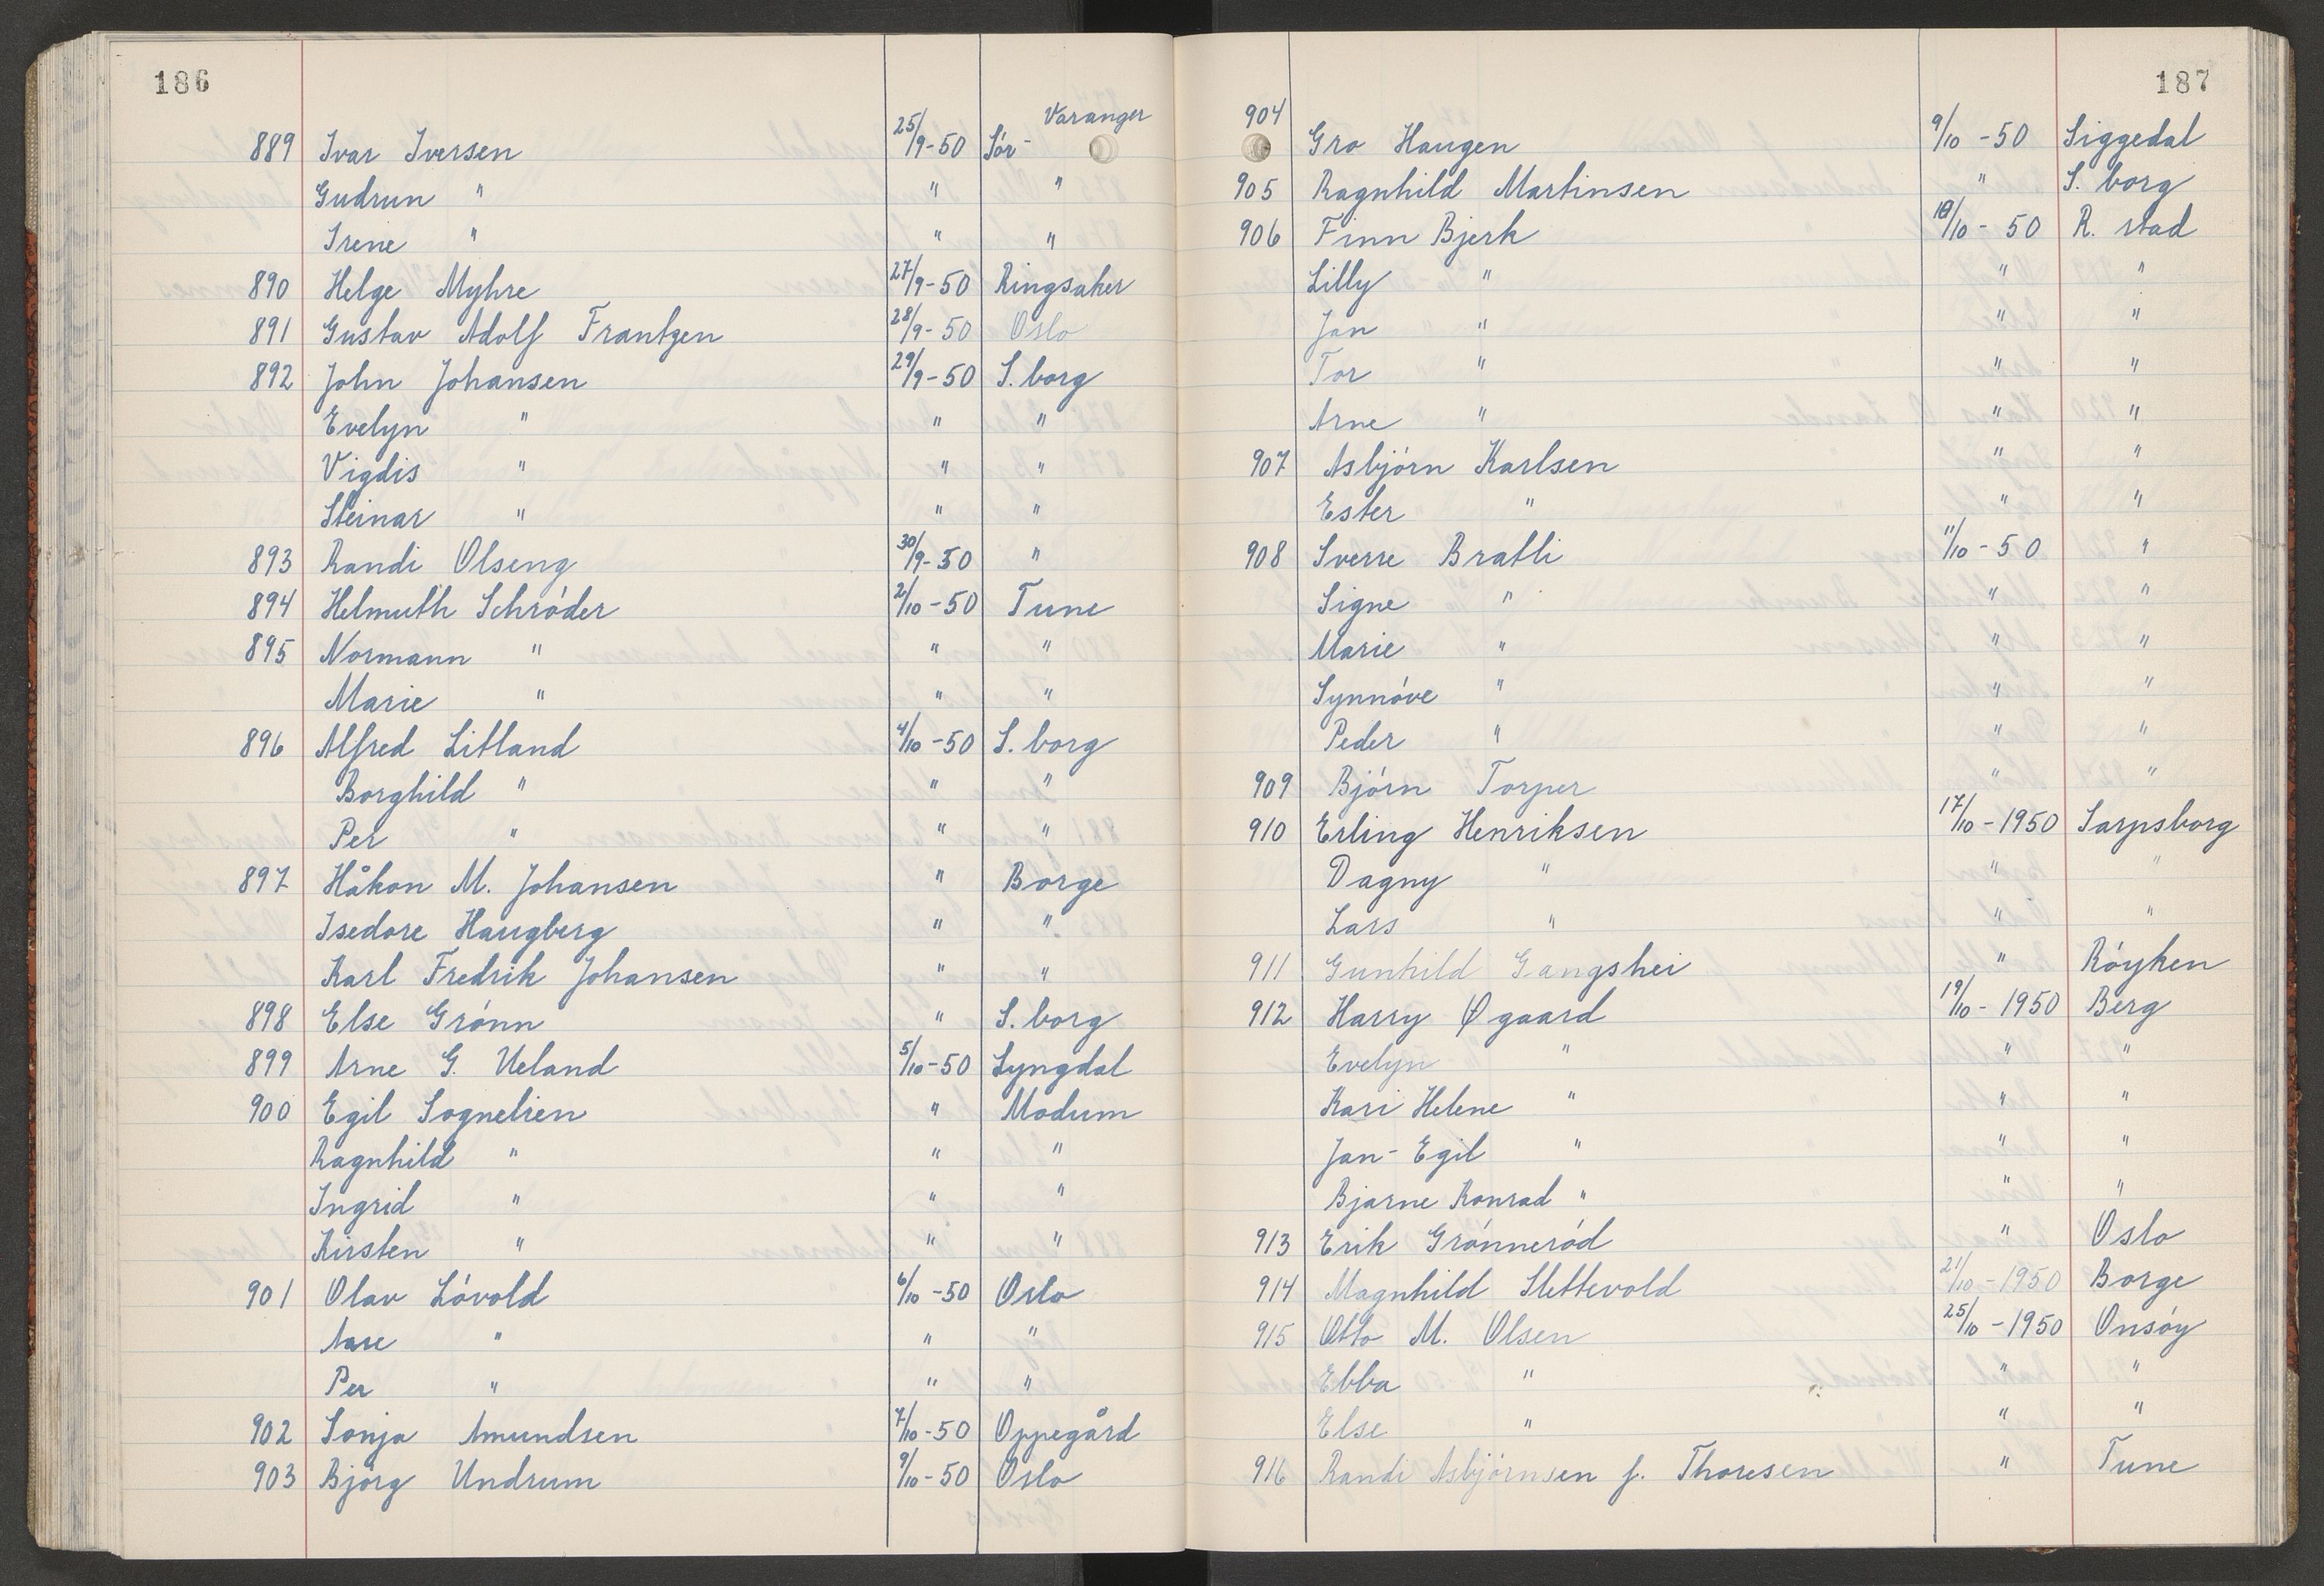 186
889 Ivar Iversen 25/9-50 Sór- Varanger
Gudrun " " "
Irene " " "
890 Helge Myhre 27/9-50 Ringsaker
891 Gustav Adolf Frantzen 28/9-50 Oslo
892 John Johansen 29/9-50 S. borg
Evelyn " " "
Vigdis " " "
Steinar " " "
893 Randi Olseng 30/9-50 "
894 Helmuth Schróder 2/10-50 Tune
895 Normann " " "
Marie " " "
896 Alfred Litland 4/10-50 S. borg
Borghild " " "
Per " " "
897 Håkon M. Johansen " Borge
Isedore Haugberg " "
Karl Fredrik Johansen " "
898 Else Grónn " S. borg
899 Arne G. Ueland 5/10-50 Lyngdal
900 Egil Sognelien " Modum
Ragnhild " " "
Ingrid " " "
Kirsten " " "
901 Olav Lóvold 6/10-50 Oslo
Aase " " "
Per " " "
902 Sonja Amundsen 7/10-50 Oppegård
903 Bjórg Undrum 9/10-50 Oslo
187
904 Gro Haugen 9/10-50 Siggedal
905 Ragnhild Martinsen " S. borg
906 Finn Bjerk 10/10-50 R. stad
Lilly " " "
Jan " " "
Tor " " "
Arne " " "
907 Asbjórn Karlsen " "
Ester " " "
908 Sverre Bratli 11/10-50 "
Signe " " "
Marie " " "
Synnóve " " "
Peder " " "
909 Bjórn Torper " "
910 Erling Henriksen 17/10-1950 Sarpsborg
Dagny " " "
Lars " " "
911 Gunhild Gangshei " Róyken
912 Harry Øgaard 19/10-1950 Berg
Evelyn " " "
Kari Helene " " "
Jan-Egil " " "
Bjarne Konrad " " "
913 Erik Grónneród " Oslo
914 Magnhild Slettevold 21/10-1950 Borge
915 Otto M. Olsen 25/10-1950 Onsóy
Ebba " " "
Else " " "
916 Randi Asbjórnsen f. Thoresen " Tune